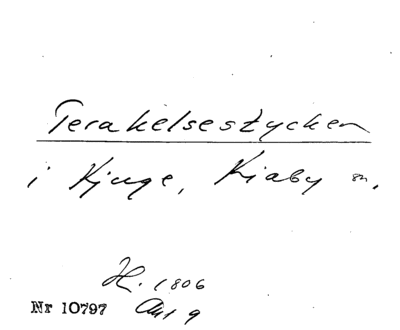 Terakelsestycken
i Kjuge, Kiaby m.
H. 1806
Nr 10797